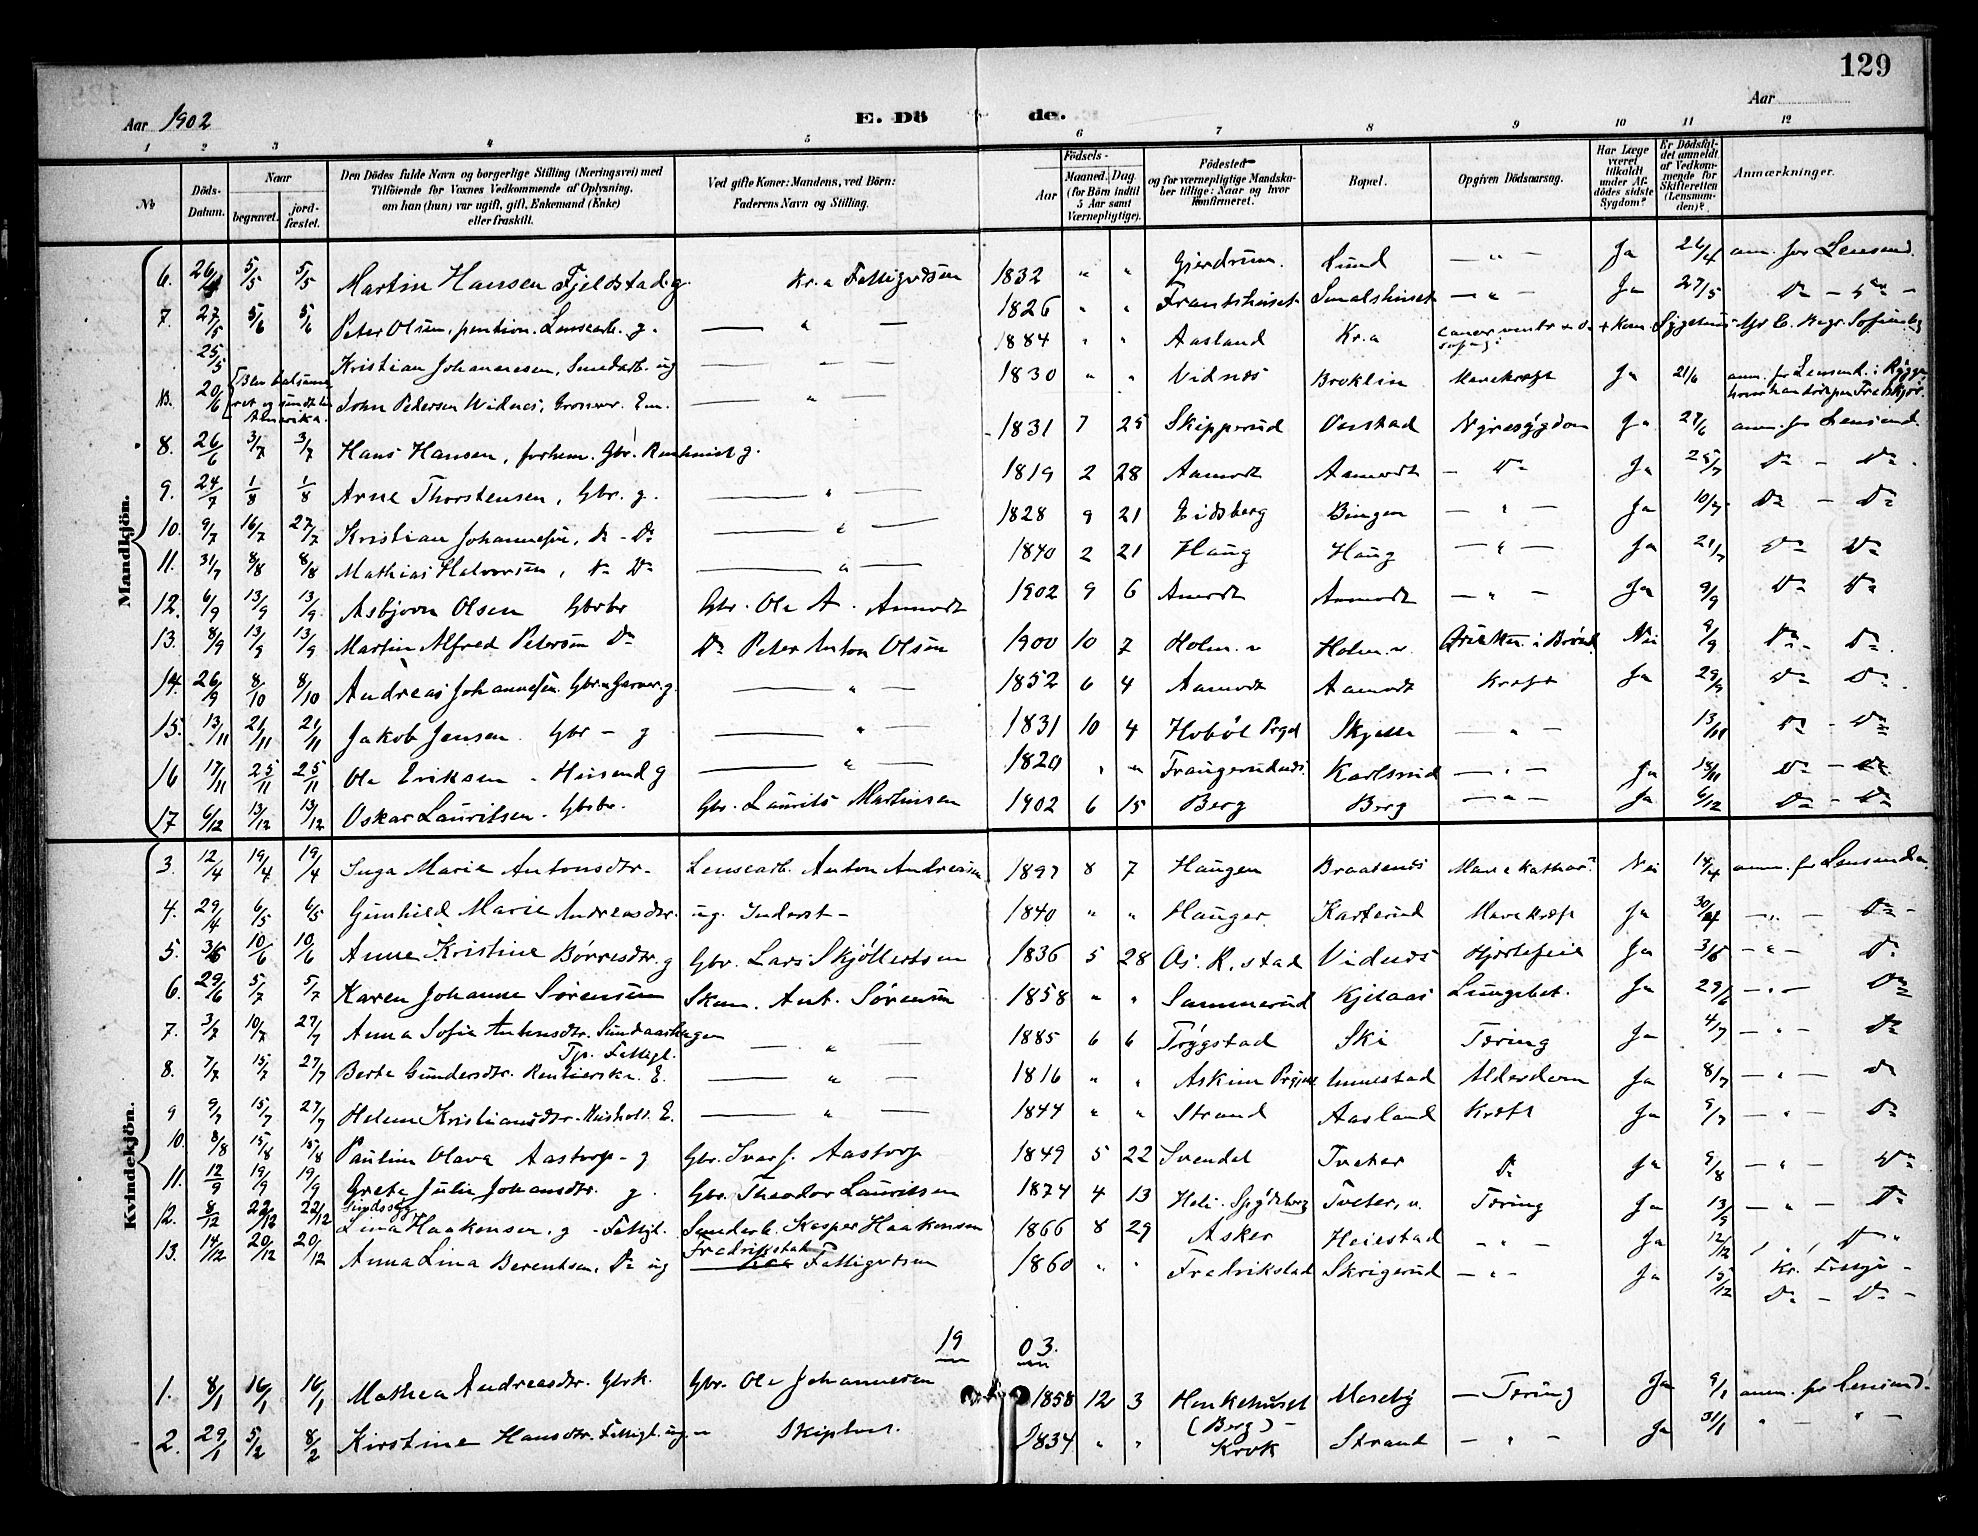 129
Aar 1902
E. Dö de.
Aar
1 2 3 4 5 6 7 8 9 10 11 12
No
Döds-Datum.
Naar
begravet. jord-fæstet.
Den Dödes fulde Navn og borgerlige Stilling (Næringsvei) med
Tilföiende for Voxnes Vedkommende af Oplysning,
om han (hun) var ugift, gift, Enkemand (Enke)
eller fraskilt.
Ved gifte Koner: Mandens, ved Börn:
Faderens Navn og Stilling.
Födsels-
Aar
Maaned. Dag.
(for Börn indtil
5 Aar samt
Værnepligtige).
Födested
og for værnepligtige Mandska-
ber tillige: Naar og hvor
konfirmeret.
Bopæl.
Opgiven Dödsaarsag.
Har Læge
været
tilkaldt
under Af-
dödes sidste
Sygdom?
Er Dödsfal-
det anmeldt
af Vedkom-
mende for
Skifteretten
(Lensman-
den)?
Anmærkninger.
Mandkjön.
6. 26/4 5/5 5/5 Martin Hansen Fjeldstad g. Kr.a Fattigvæsen 1832 " " Gjerdrum Lund — " — Ja 26/4 anm. for Lensmd.
7. 27/5 5/6 5/6 Peter Olsen, pention. Lensearb. g. — " — 1826 " " Frantshuset Smalshuset — " — Ja 27/5 Do
25/5 Kristian Johannesen, ug — " — 1884 " " Aasland Kr.a
20/6 Amerika. John Pedersen Widnes, Em. — " — 1830 " " Vidnes Broklin Mavekræft Ja 21/6 anm. for Lensmd. i
8. 26/6 3/7 3/7 Hans Hansen, forhenv. Gbr. g. 1831 7 25 Skipperud Overstad Nyresygdom Ja 27/6 anm. for Lensmd.
9. 24/7 1/8 1/8 Arne Thorstensen, Gbr. g. — " — 1819 2 28 Aamodt Aamodt — Do Ja 25/7 Do — Do
10. 9/7 16/7 27/7 Kristian Johannesen, Do — " — 1828 9 21 Eidsberg Bingen — " — Ja 10/7 Do — Do
11. 31/7 8/8 8/8 Mathias Halvorsen, Do — " — 1840 2 21 Haug Haug — " — Ja 21/7 Do Do
12. 6/9 13/9 13/9 Asbjørn Olsen Gbrbr Gbr. Ole A. Aamodt 1902 9 6 Amodt Aamodt — " — Ja 9/9 Do Do
13. 8/9 13/9 13/9 Martin Alfred Petersen Do Do Peter Anton Olsen 1900 10 7 Holm. v Holm. v. i Brønd Nei 9/9 Do Do
14. 26/9 8/10 8/10 Andreas Johannesen. g. — " — 1852 6 4 Aamodt Aamodt Kræft Ja 29/9 Do Do
15. 13/11 21/11 21/11 Jakob Jensen. Gbr — g — " — 1831 10 4 Hobøl Prgd — " — 13/11 Do — Do
16 17/11 25/11 25/11 Ole Eriksen — Husmd g — " — 1820 " " Karlsrud — " — Ja 18/11 Do — Do
17 6/12 13/12 13/12 Oskar Lauritsen. Gbrbr. Gbr. Laurits Martinsen 1902 6 15 Berg Berg — " — Ja 6/12 Do — Do
Kvindekjön.
3. 12/4 19/4 19/4 Inga Marie Antonsdtr. Lensearb. Anton Andresen 1897 8 7 Haugen Braatenes Mavekathar Nei 14/4 anm. for Lensmden
4. 29/4 6/5 6/5 Gunhild Marie Andreasdtr. ug. Inderst — 1840 " " Hauger Karterud Mavekræft Ja 30/4 — " — Do
5. 3/6 10/6 10/6 Anne Kristine Børresdtr. g Gbr. Lars Skjøllertsen 1836 5 28 Vidnes Hjertefeil Ja 3/6 — " — Do
6. 29/6 5/7 5/7 Karen Johanne Sørensen Skm. Ant. Sørensen 1858 " " Sammerud Kjelaas Lungebet. Ja 29/6 — " — Do
7. 3/7 10/7 27/7 Anna Sofie Antonsdtr. — " — 1885 6 6 Trøgstad Ski Tæring Ja 4/7 — " — Do
8. 7/7 15/7 27/7 Berte Gundersdtr. E. — " — 1816 " " Askim Alderdom Ja 8/7 — " — Do
9 9/7 15/7 27/7 Helene Kristiansdtr. E. — " — 1844 " " Strand Aasland Kræft Ja 9/7 — " — Do
10. 8/8 15/8 15/8 Pauline Olava Aastorp — g Gbr. Ivar J. Aastorp 1849 5 22 Svendal Tveter Do Ja 9/8 — " — Do
11. 12/9 19/9 19/9 Grete Julie Johansdtr. g. Gbr. Theodor Lauritsen 1874 4 13 Heli. Spydeberg Tveter, v. Tæring Ja 13/9 — " — Do
12. 8/12 22/12 22/12 Lina Haakensen. g — Fattigl. Kasper Haakensen 1866 8 29 Asker Heiestad — " — Ja 12/12 " " Do "
13. 14/12 20/12 20/12 Anna Lina Berentsen. Do ug Fredrikstad Fattigvæsen 1860 " " Fredrikstad Skrigerud — " — Ja 15/12 Do — Do —
1903.
1. 8/1 16/1 16/1 Mathea Andreasdtr. Gbrk. Gbr. Ole Johannesen 1858 12 3 Henkehuset (Berg) — Moseby — Tæring Ja 9/1 anm. for Lensmd.
2. 29/1 5/2 8/2 Kirstine Hansdtr. Fattigl. ug Skiptvet. 1834 " " Krok Strand — " — Ja 31/1 " — " —